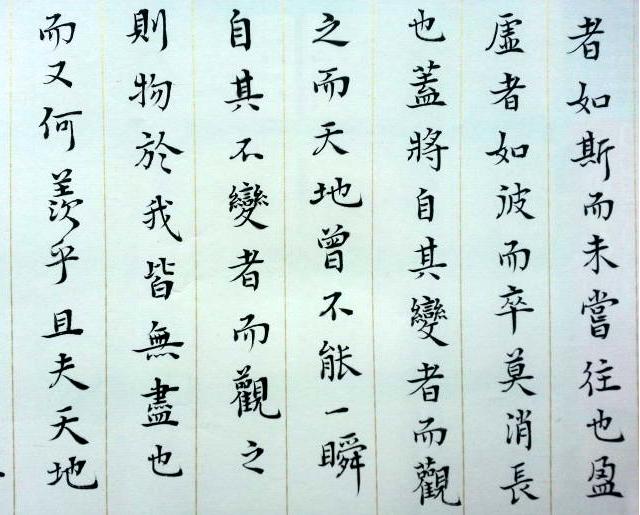 者如斯而未嘗往也盈
虛者如彼而卒莫消長
也蓋將自其變者而觀
之而天地曾不能一瞬
自其不變者而觀之
則物於我皆無盡也
而又何羨乎且夫天地